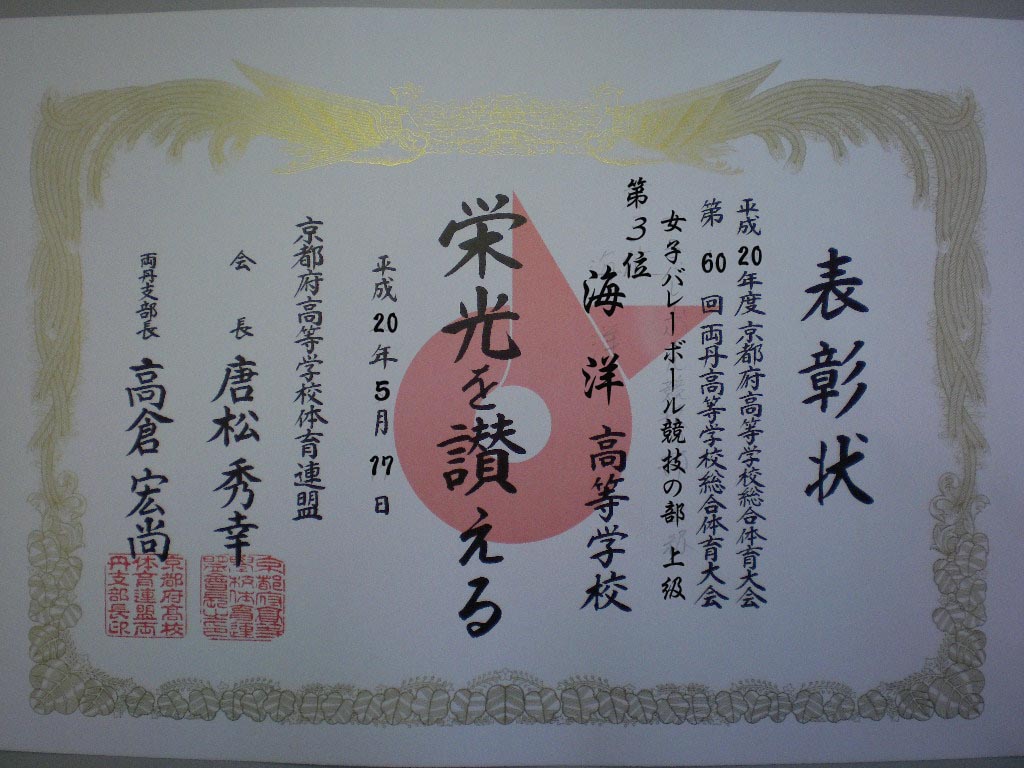 表彰状
平成20年度京都府高等学校総合体育大会
第60回両丹高等学校総合体育大会
女子バレーボール競技の部 上級
第3位
海洋高等学校
栄光を讃える
平成20年5月17日
京都府高等学校体育連盟
会長 唐松秀幸
両丹支部長 高倉宏尚
京都府高校
体育連盟両
丹支部長印